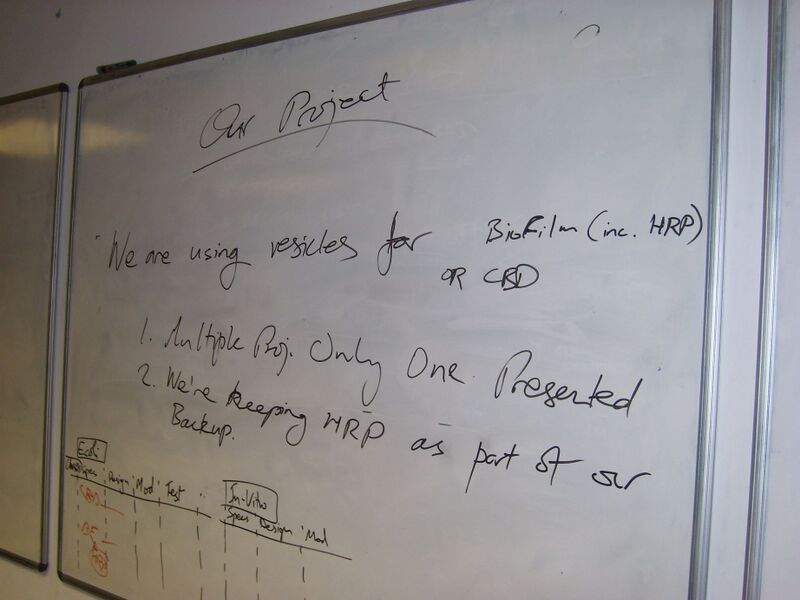 Our Project
We are using vesicles for BioFilm (inc. HRP)
OR CBD
1. Multiple Proj. Only One Presented
2. We're keeping HRP as part of our
Backup.
Ecoli
Specs Design Mod Test ..
In-Vitro
Specs Design Mod
CBD
BF
HRP